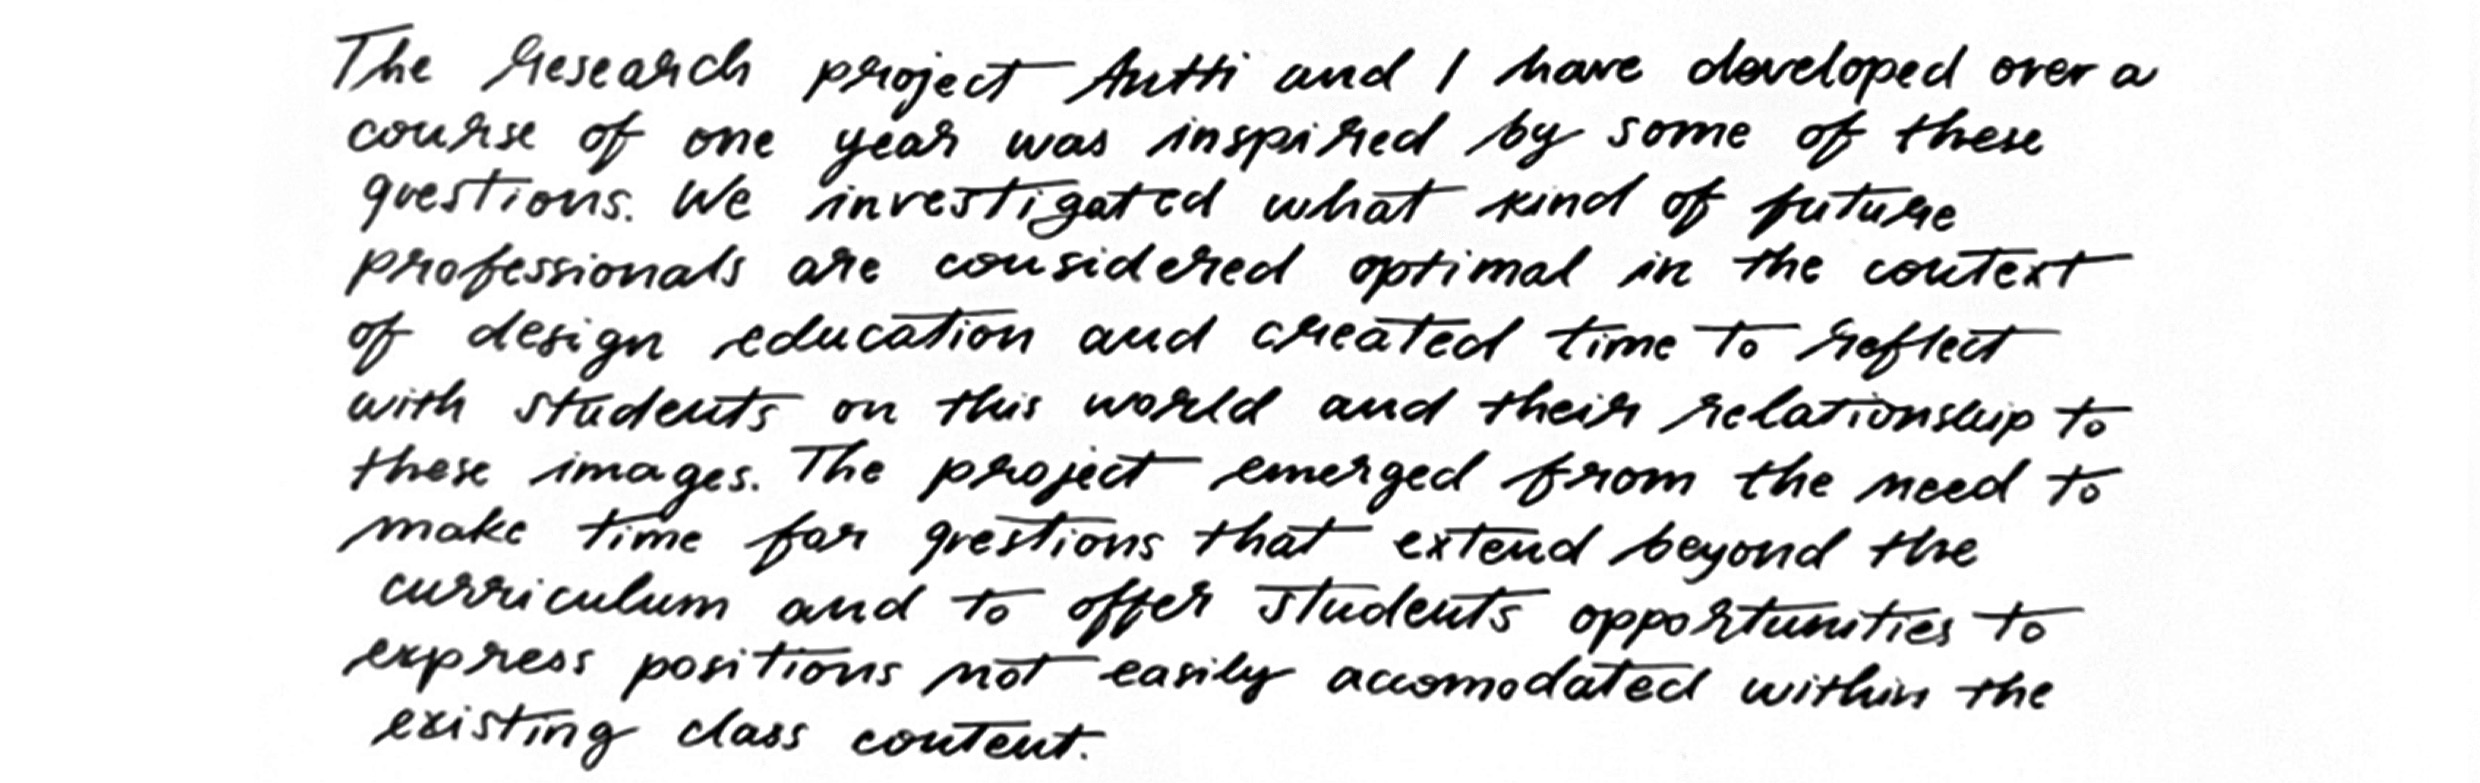 The research project Antti and I have developed over a
course of one year was inspired by some of these
questions. We investigated what kind of future
professionals are considered optimal in the context
of design education and created time to reflect
with students on this world and their relationship to
these images. The project emerged from the need to
make time for questions that extend beyond the
curriculum and to offer students opportunities to
express positions not easily accomodated within the
existing class content.